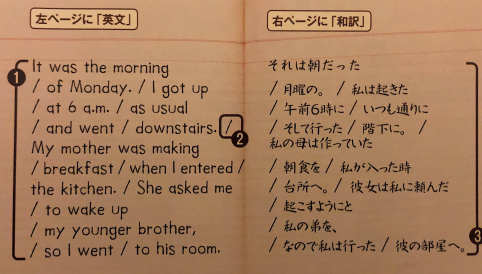 左ページに「英文」
❶
It was the morning
/ of Monday. / I got up
/ at 6 a.m. / as usual
/ and went / downstairs. /
❷
My mother was making
/ breakfast / when I entered /
the kitchen. / She asked me
/ to wake up
/ my younger brother,
/ so I went / to his room.
右ページに「和訳」
それは朝だった
/ 月曜の。 / 私は起きた
/ 午前6時に / いつも通りに
/ そして行った / 階下に。 /
私の母は作っていた
/ 朝食を / 私が入った時
/ 台所へ。 / 彼女は私に頼んだ
/ 起こすようにと
/ 私の弟を、
/ なので私は行った / 彼の部屋へ。
❸